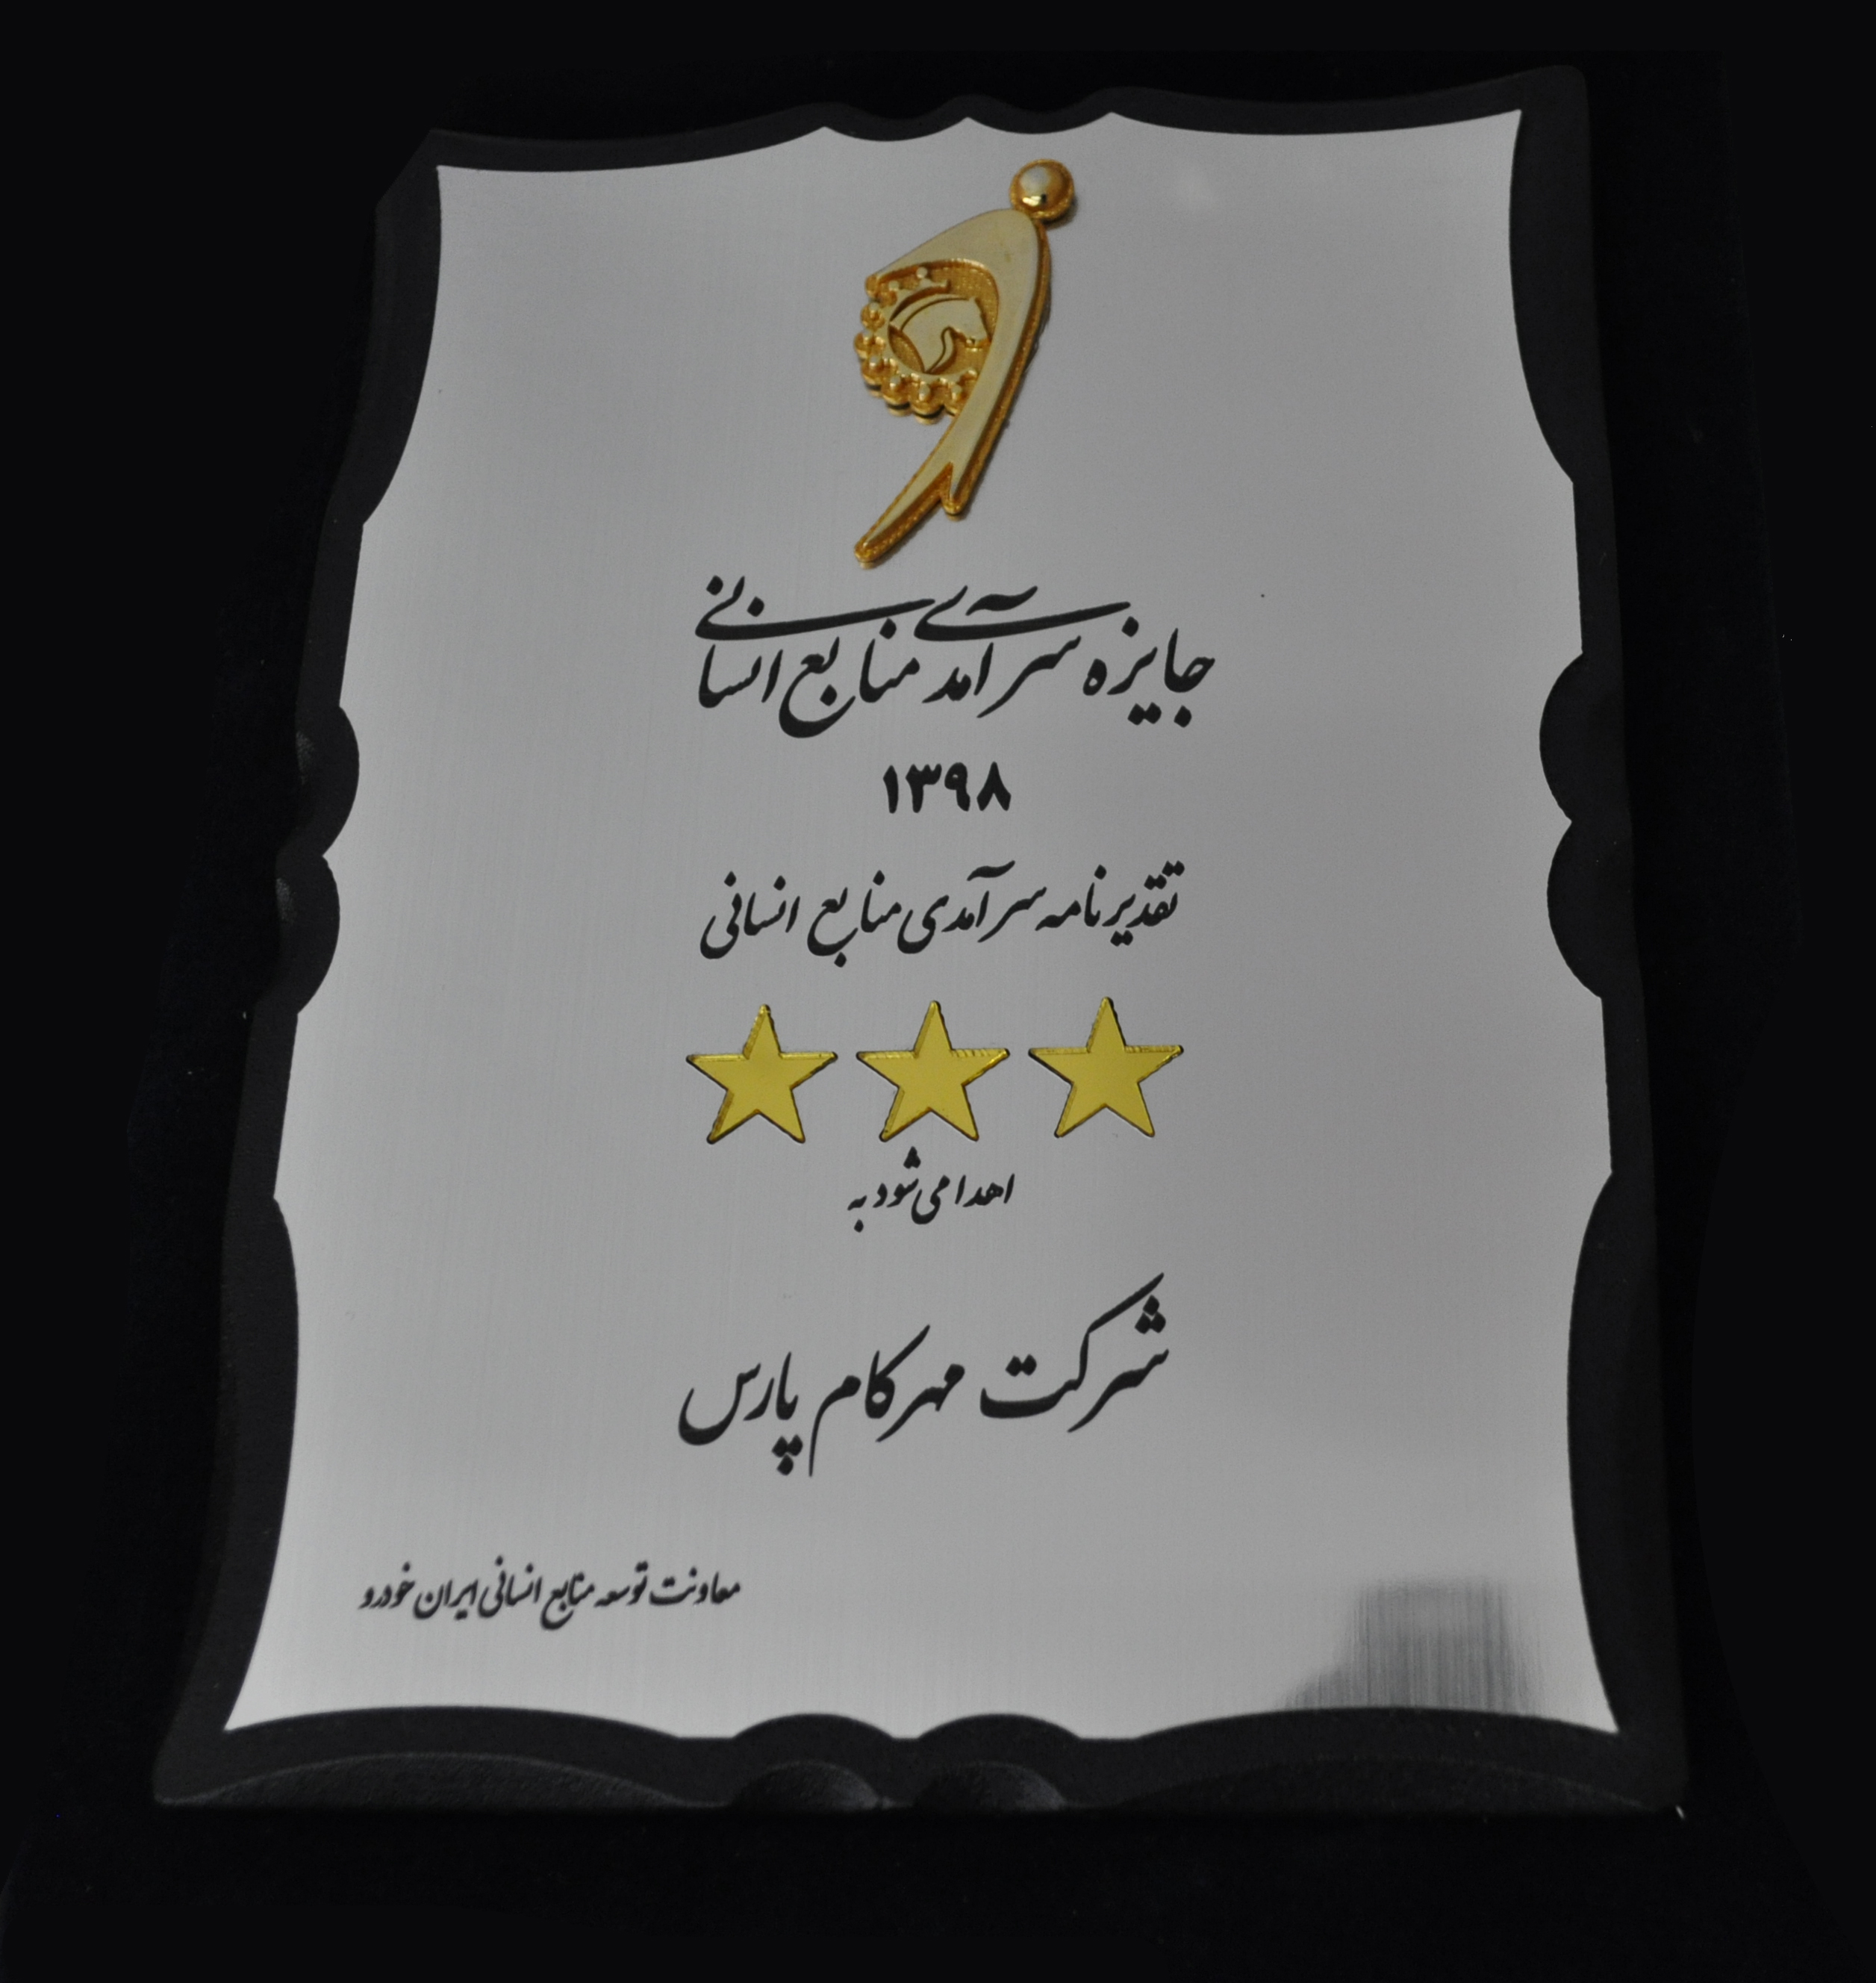 جایزه سرآمدی منابع انسانی
۱۳۹۸
تقدیرنامه سرآمدی منابع انسانی
اهدا می شود به
شرکت مهرکام پارس
معاونت توسعه منابع انسانی ایران خودرو